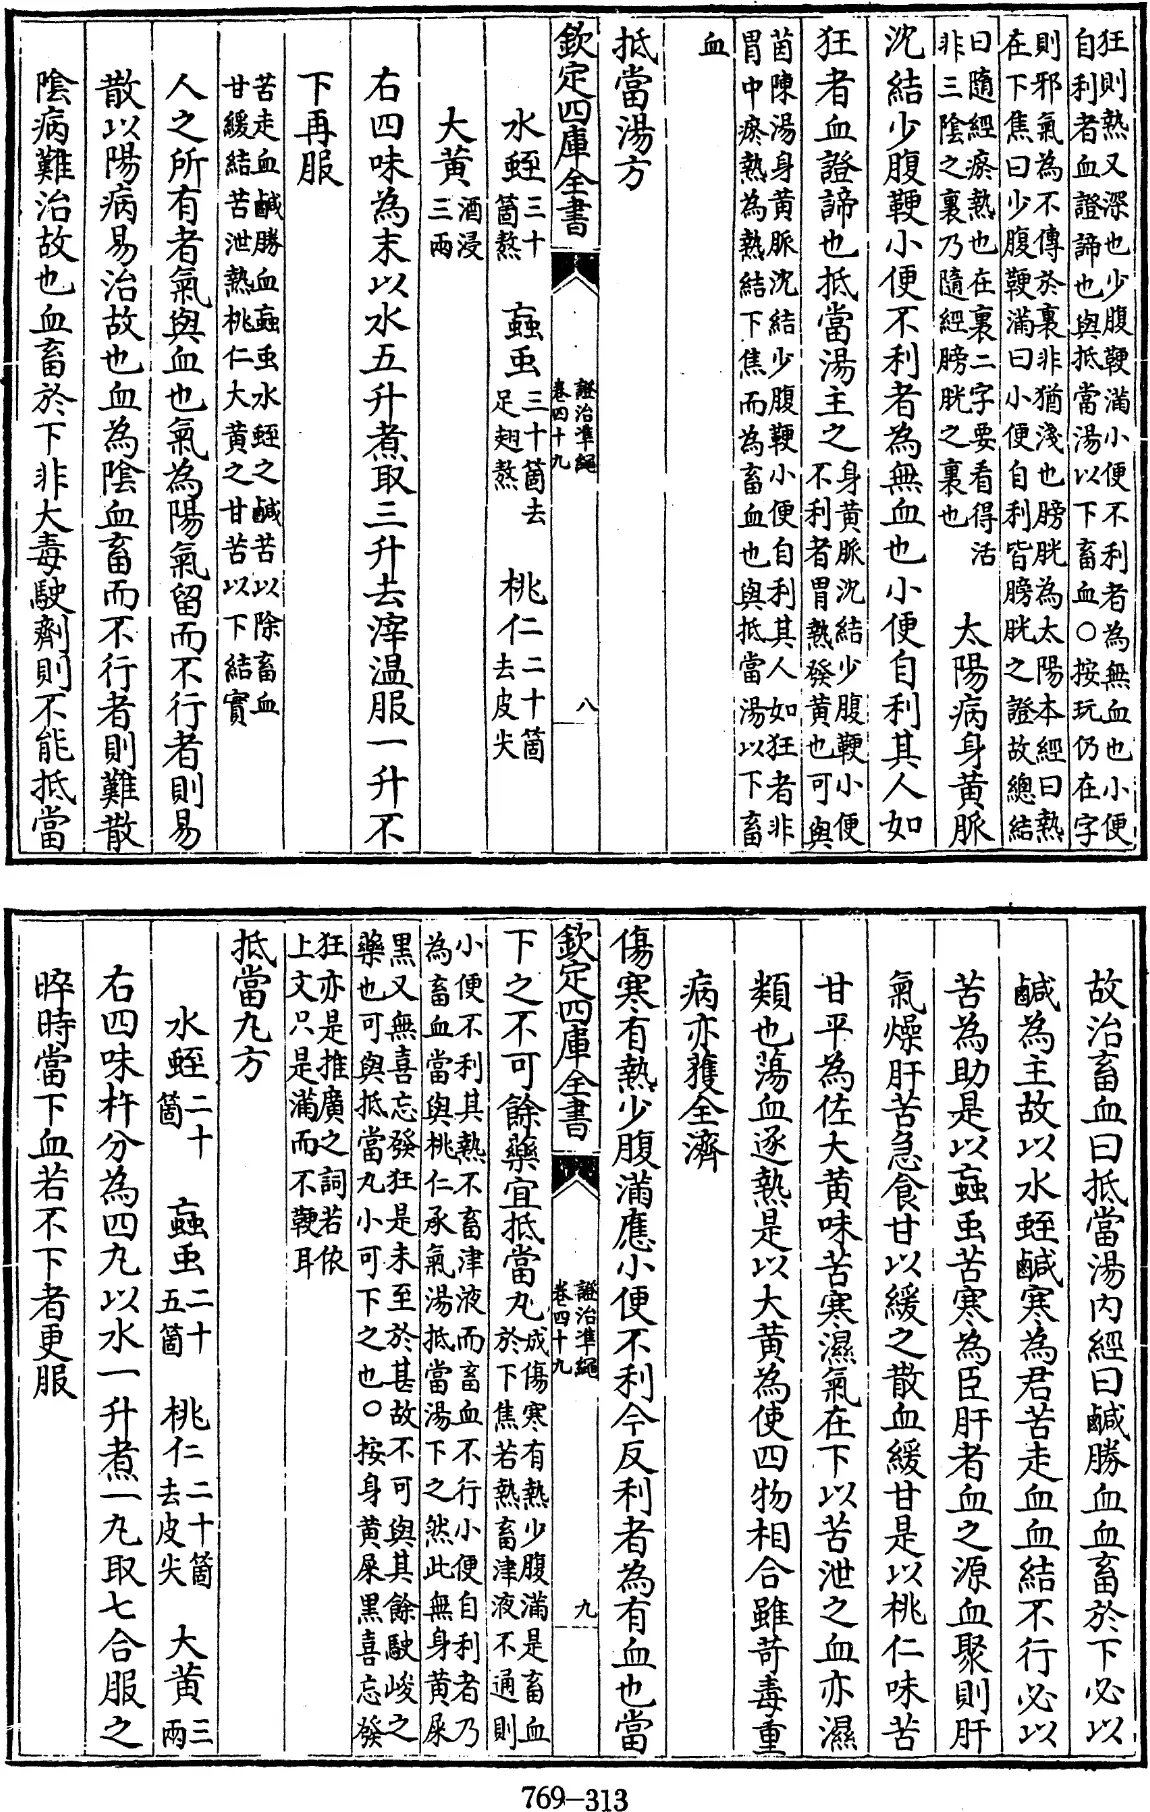 狂則熱又深也少腹鞕滿小便不利者為無血也小便
自利者血證諦也與抵當湯以下畜血○按玩仍在字
則邪氣為不傳於裏非猶淺也膀胱為太陽本經曰熱
在下焦曰少腹鞕滿曰小便自利皆膀胱之證故總結
曰隨經瘀熱也在裏二字要看得活
非三陰之裏乃隨經膀胱之裏也
太陽病身黄脈
沈結少腹鞕小便不利者為無血也小便自利其人如
狂者血證諦也抵當湯主之
身黄脈沈結少腹鞕小便
不利者胃熱發黄也可與
茵陳湯身黄脈沈結少腹鞕小便自利其人如狂者非
胃中瘀熱為熱結下焦而為畜血也與抵當湯以下畜
血
抵當湯方
欽定四庫全書 證治準繩 卷四十九 八
水蛭三十箇熬 蝱蟲三十箇去足翅熬 桃仁二十箇去皮尖
大黄酒浸三兩
右四味為末以水五升煮取三升去滓温服一升不
下再服
苦走血鹹勝血蝱蟲水蛭之鹹苦以除畜血
甘緩結苦泄熱桃仁大黄之甘苦以下結實
人之所有者氣與血也氣為陽氣留而不行者則易
散以陽病易治故也血為陰血畜而不行者則難散
陰病難治故也血畜於下非大毒駛劑則不能抵當
故治畜血曰抵當湯内經曰鹹勝血血畜於下必以
鹹為主故以水蛭鹹寒為君苦走血血結不行必以
苦為助是以蝱蟲苦寒為臣肝者血之源血聚則肝
氣燥肝苦急食甘以緩之散血緩甘是以桃仁味苦
甘平為佐大黄味苦寒濕氣在下以苦泄之血亦濕
類也蕩血逐熱是以大黄為使四物相合雖苛毒重
病亦獲全濟
傷寒有熱少腹滿應小便不利今反利者為有血也當
欽定四庫全書 證治準繩 卷四十九 九
下之不可餘藥宜抵當丸
成傷寒有熱少腹滿是畜血
於下焦若熱畜津液不通則
小便不利其熱不畜津液而畜血不行小便自利者乃
為畜血當與桃仁承氣湯抵當湯下之然此無身黄屎
黑又無喜忘發狂是未至於甚故不可與其餘駛峻之
藥也可與抵當丸小可下之也○按身黄屎黑喜忘發
狂亦是推廣之詞若依
上文只是滿而不鞕耳
抵當丸方
水蛭二十箇 蝱蟲二十五箇 桃仁二十箇去皮尖 大黄三兩
右四味杵分為四丸以水一升煮一丸取七合服之
晬時當下血若不下者更服
769-313